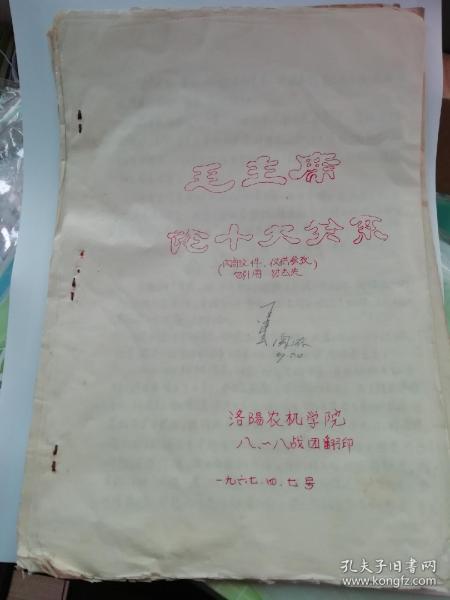 毛主席
论十大关系
(内部文件、仅供参考)
勿引用 勿遗失
洛陽农机学院
八、一八战团翻印
一九六七.四.七号
孔夫子旧书网
www.kongfz.com